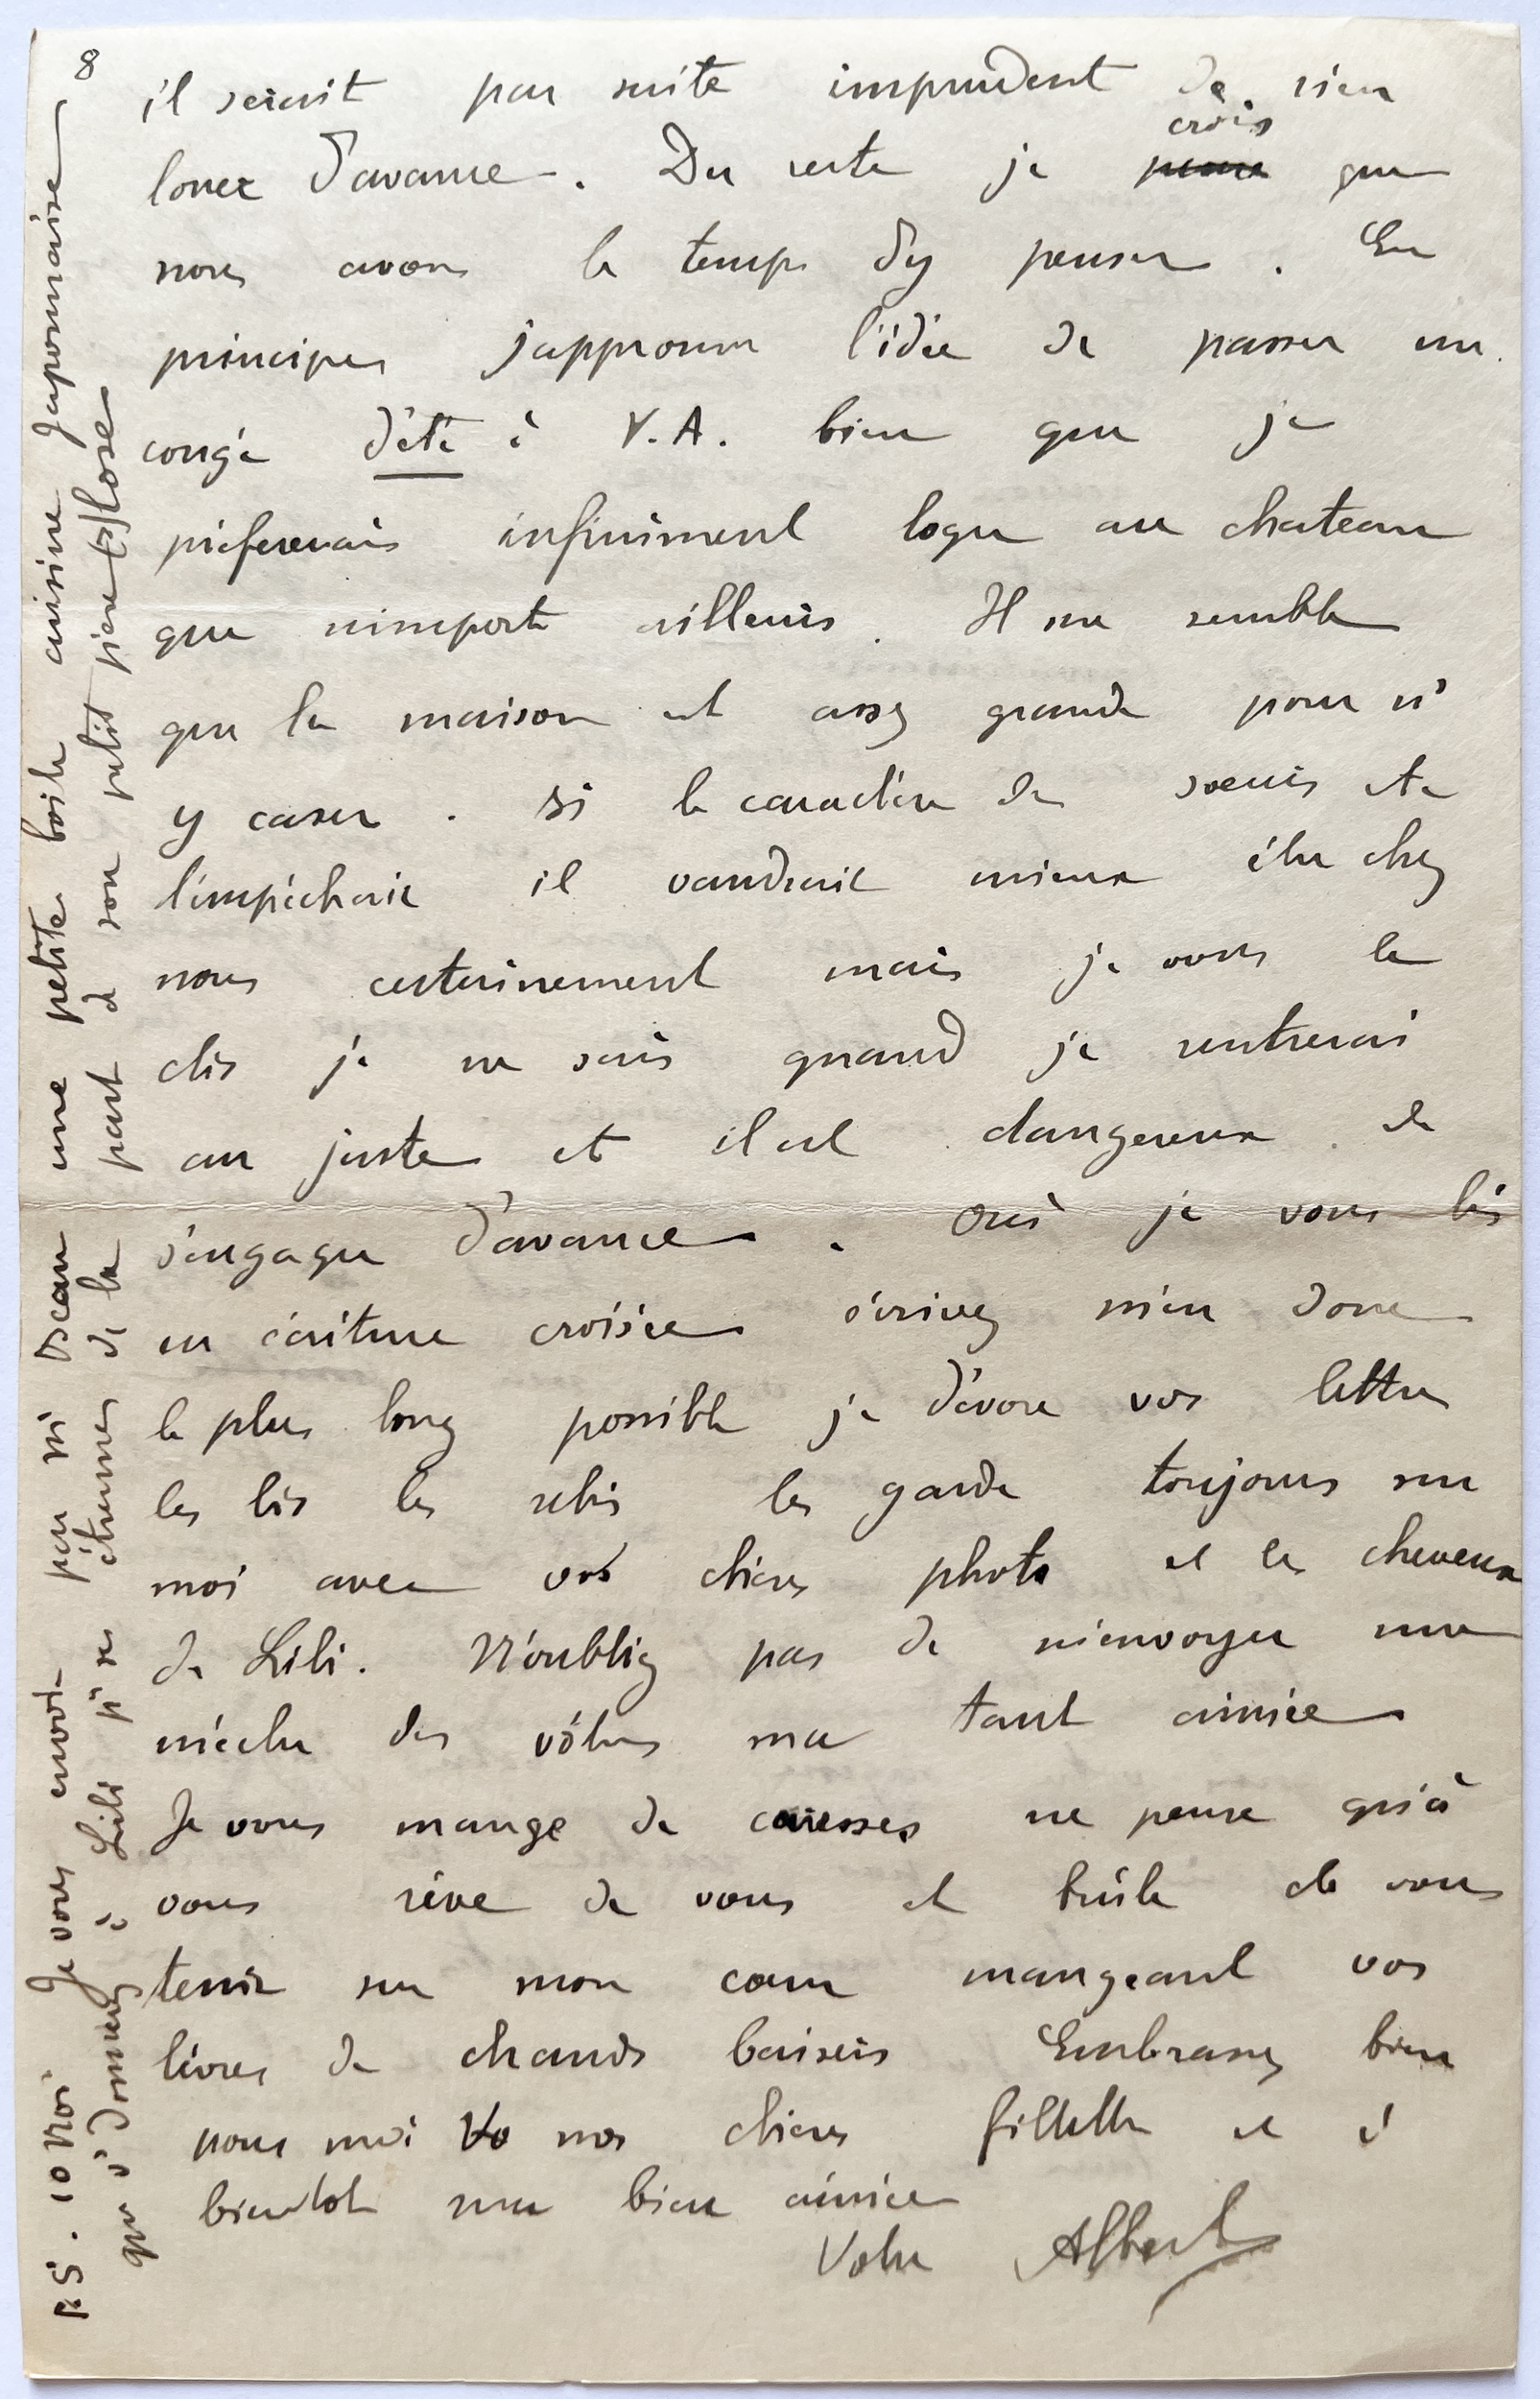 8
il serait par suite imprudent de rien
louer d'avance. Du reste je pense crois que
nous avons le temps d'y penser. En
principes j'approuve l'idée de passer un
congé d'été à V.A. bien que je
préfererais infiniment loger au chateau
que n'importe ailleurs. Il me semble
que la maison est assez grande pour s'
y caser. Si le caractère de soeur
l'empêchait il vaudrait mieux être chez
nous certainement mais je vous le
dis je ne sais quand je rentrerai
au juste et il est dangereux de
s'engager d'avance. Oui je vous lis
en écriture croisée écrivez m'en donc
le plus long possible je dévore vos lettres
les lis les relis les garde toujours sur
moi avec vos chères photos et les cheveux
de Lili. N'oubliez pas de m'envoyer une
mèche des vôtres ma tant aimée
Je vous mange de caresses ne pense qu'à
vous rêve de vous et brûle de vous
tenir sur mon coeur mangeant vos
lèvres de chauds baisers Embrassez bien
pour moi nos chères fillette et à
bientot ma bien aimée
Votre Albert
P.S. 10 Je vous envoie par une petite boite cuisine Japonnaise
que donnerez à Lili pr ses étrennes de la part d son petit père